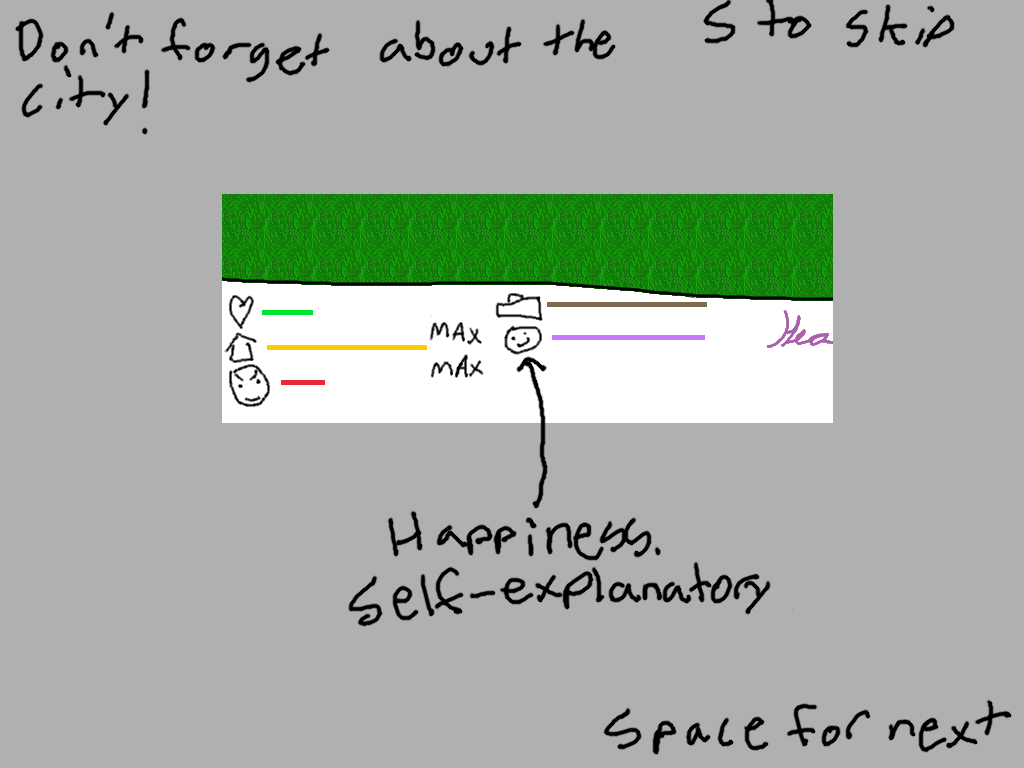 Don't forget about the
city!
S to skip
MAX
MAX
Hea
Happiness.
Self-explanatory
Space for next